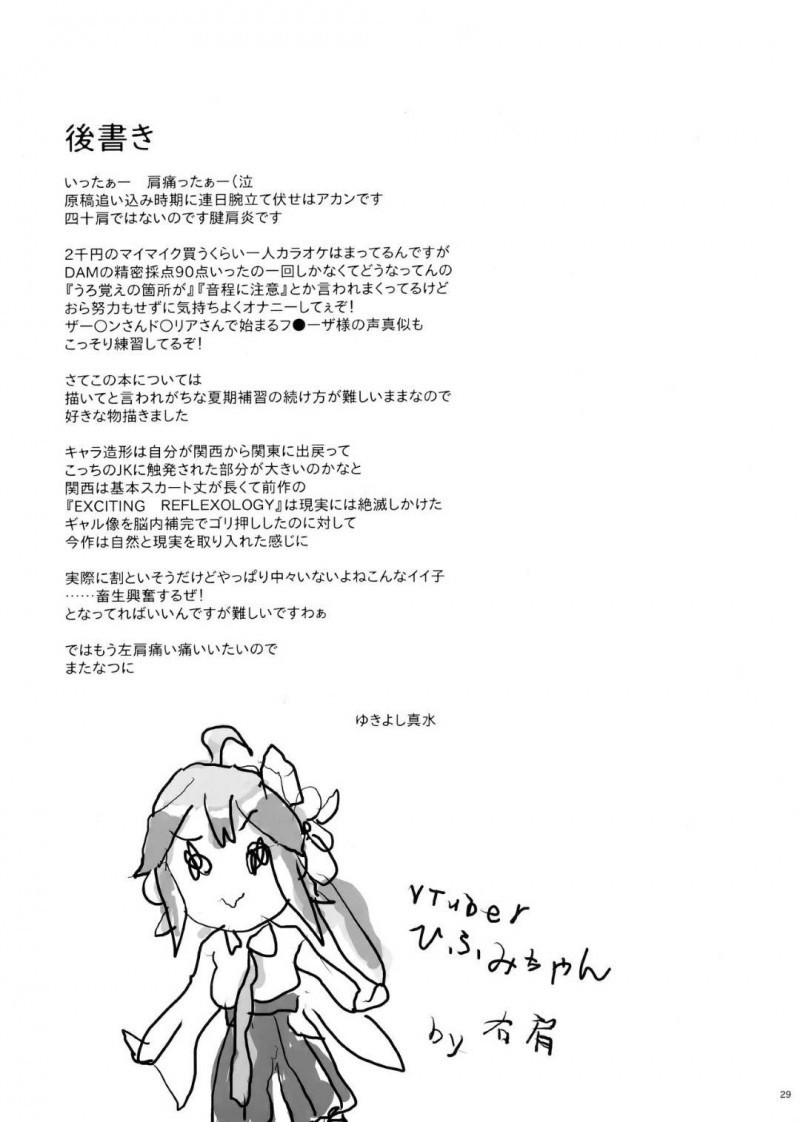 後書き
いったぁー　肩痛ったぁー(泣
原稿追い込み時期に連日腕立て伏せはアカンです
四十肩ではないのです腱肩炎です
2千円のマイマイク買うくらい一人カラオケはまってるんですが
DAMの精密採点90点いったの一回しかなくてどうなってんの
『うろ覚えの箇所が』『音程に注意』とか言われまくってるけど
おら努力もせずに気持ちよくオナニーしてぇぞ！
ザー〇ンさんド〇リアさんで始まるフ●ーザ様の声真似も
こっそり練習してるぞ！
さてこの本については
描いてと言われがちな夏期補習の続け方が難しいままなので
好きな物描きました
キャラ造形は自分が関西から関東に出戻って
こっちのJKに触発された部分が大きいのかなと
関西は基本スカート丈が長くて前作の
『EXCITING　REFLEXOLOGY』は現実には絶滅しかけた
ギャル像を脳内補完でゴリ押ししたのに対して
今作は自然と現実を取り入れた感じに
実際に割といそうだけどやっぱり中々いないよねこんなイイ子
……畜生興奮するぜ！
となってればいいんですが難しいですわぁ
ではもう左肩痛い痛いいたいので
またなつに
ゆきよし真水
VTuber
ひふみちゃん
by 右肩
29